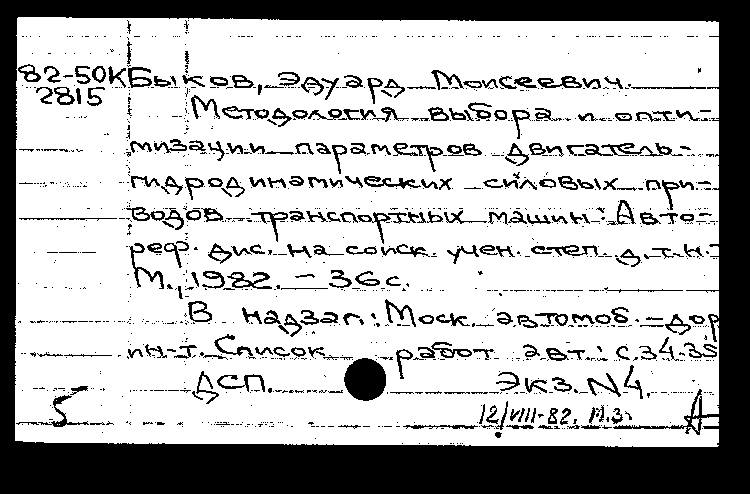 82-50К Быков, Эдуард Моисеевич.
2815
Методология выбора и опти-
мизации параметров двигатель-
гидродинамических силовых при-
водов транспортных машин: Авто-
реф. дис. на соиск. учен. степ. д.т.н.-
М., 1982. - 36 с.
В надзаг.: Моск. автомоб.-дор
ин-т. Список работ авт.: с.34-35
ДСП. Экз. N4.
5 12/VIII-82. М.З. А